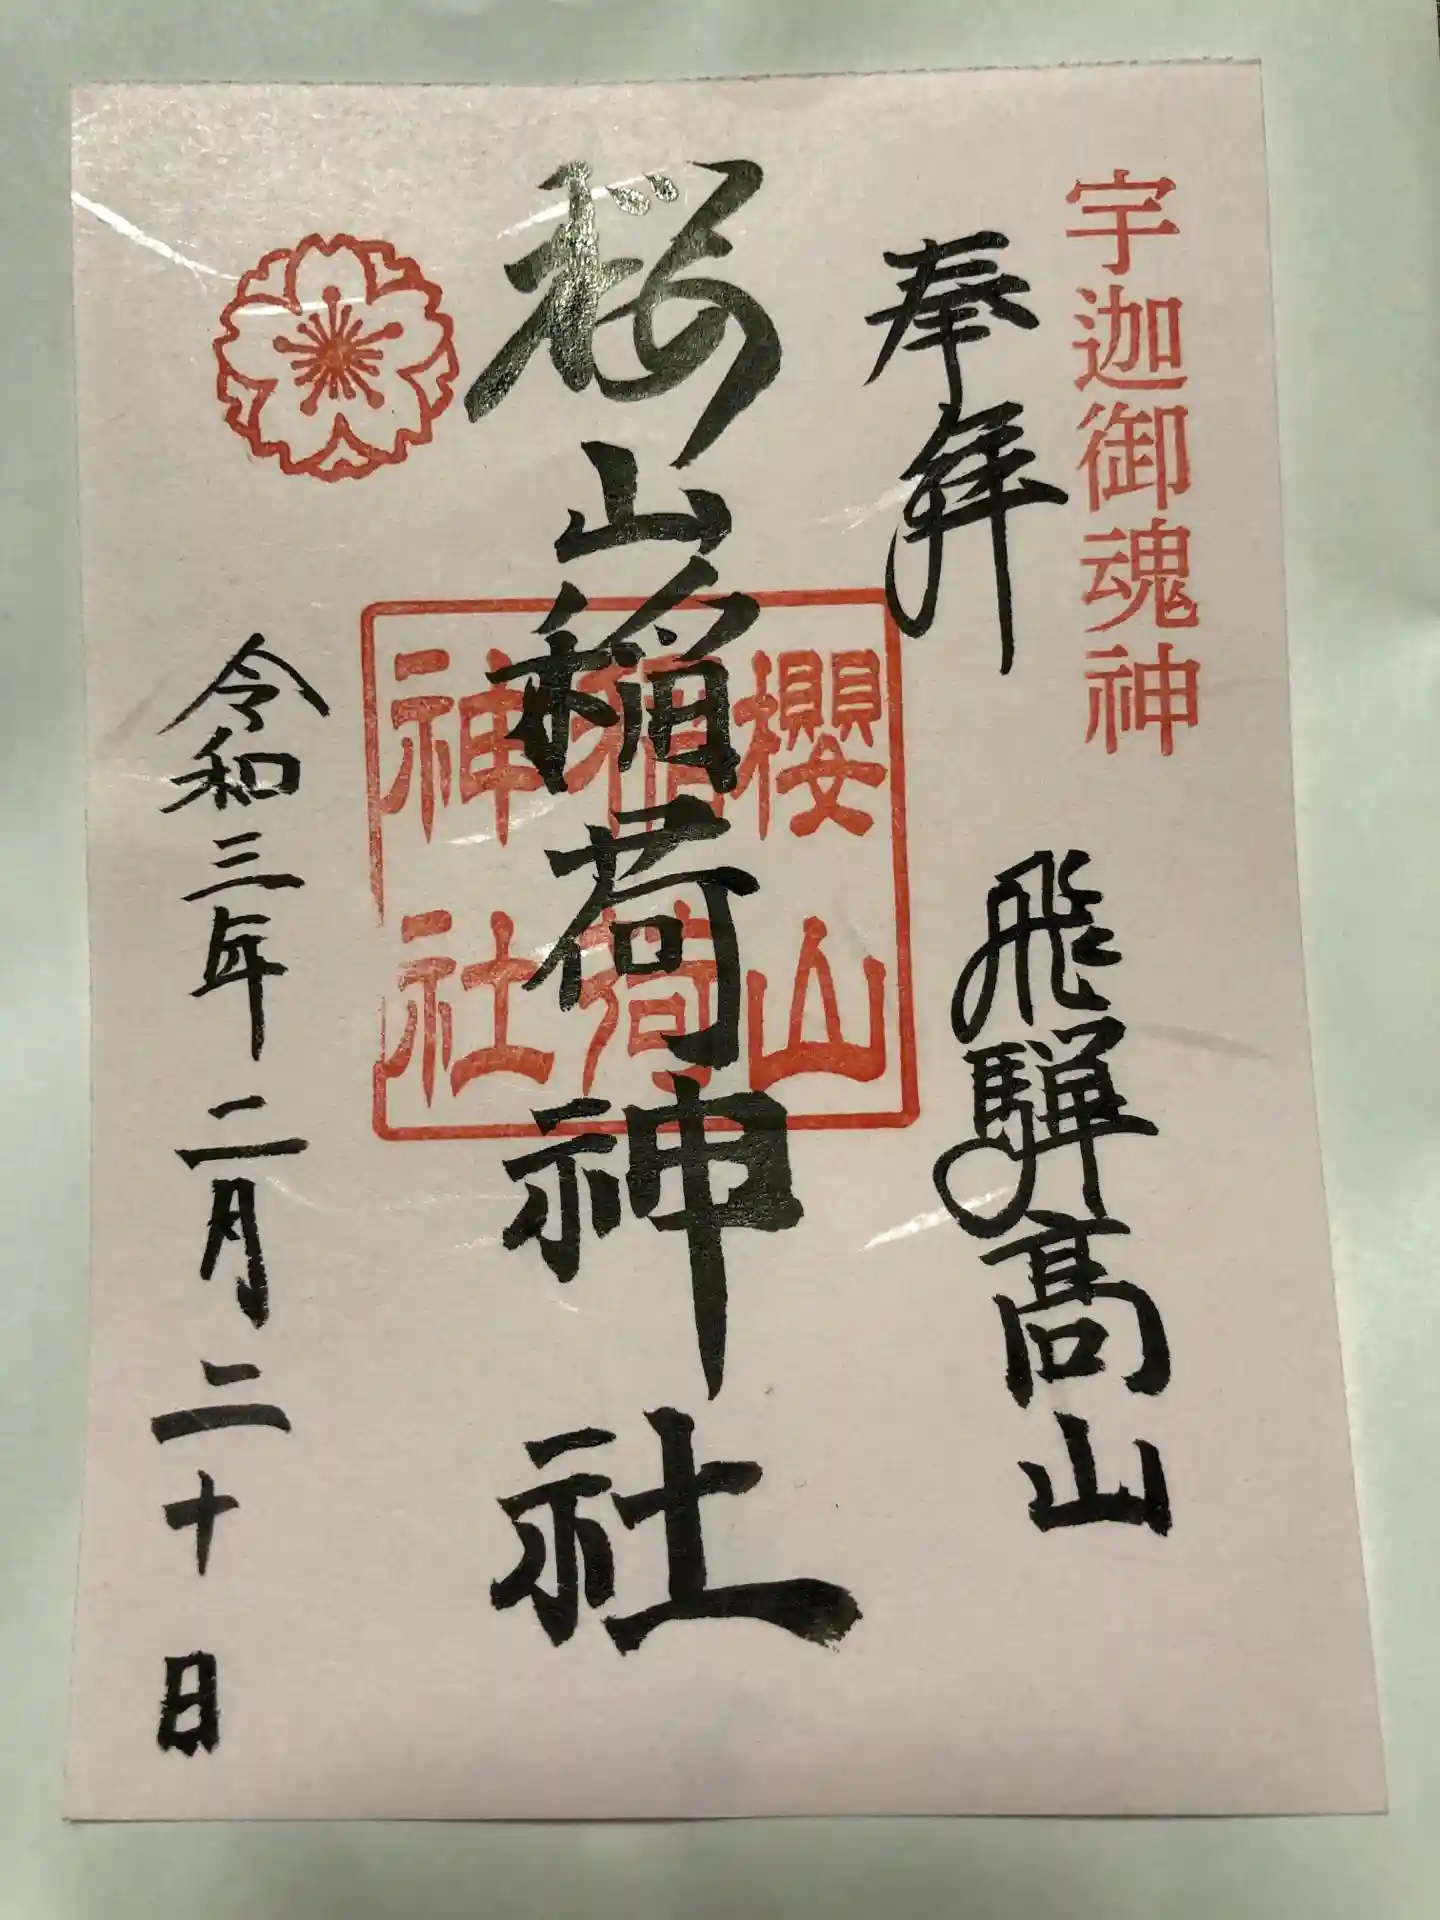 宇迦御魂神
奉拝
飛騨高山
桜山稲荷神社
櫻山
稲荷
神社
令和三年二月二十日